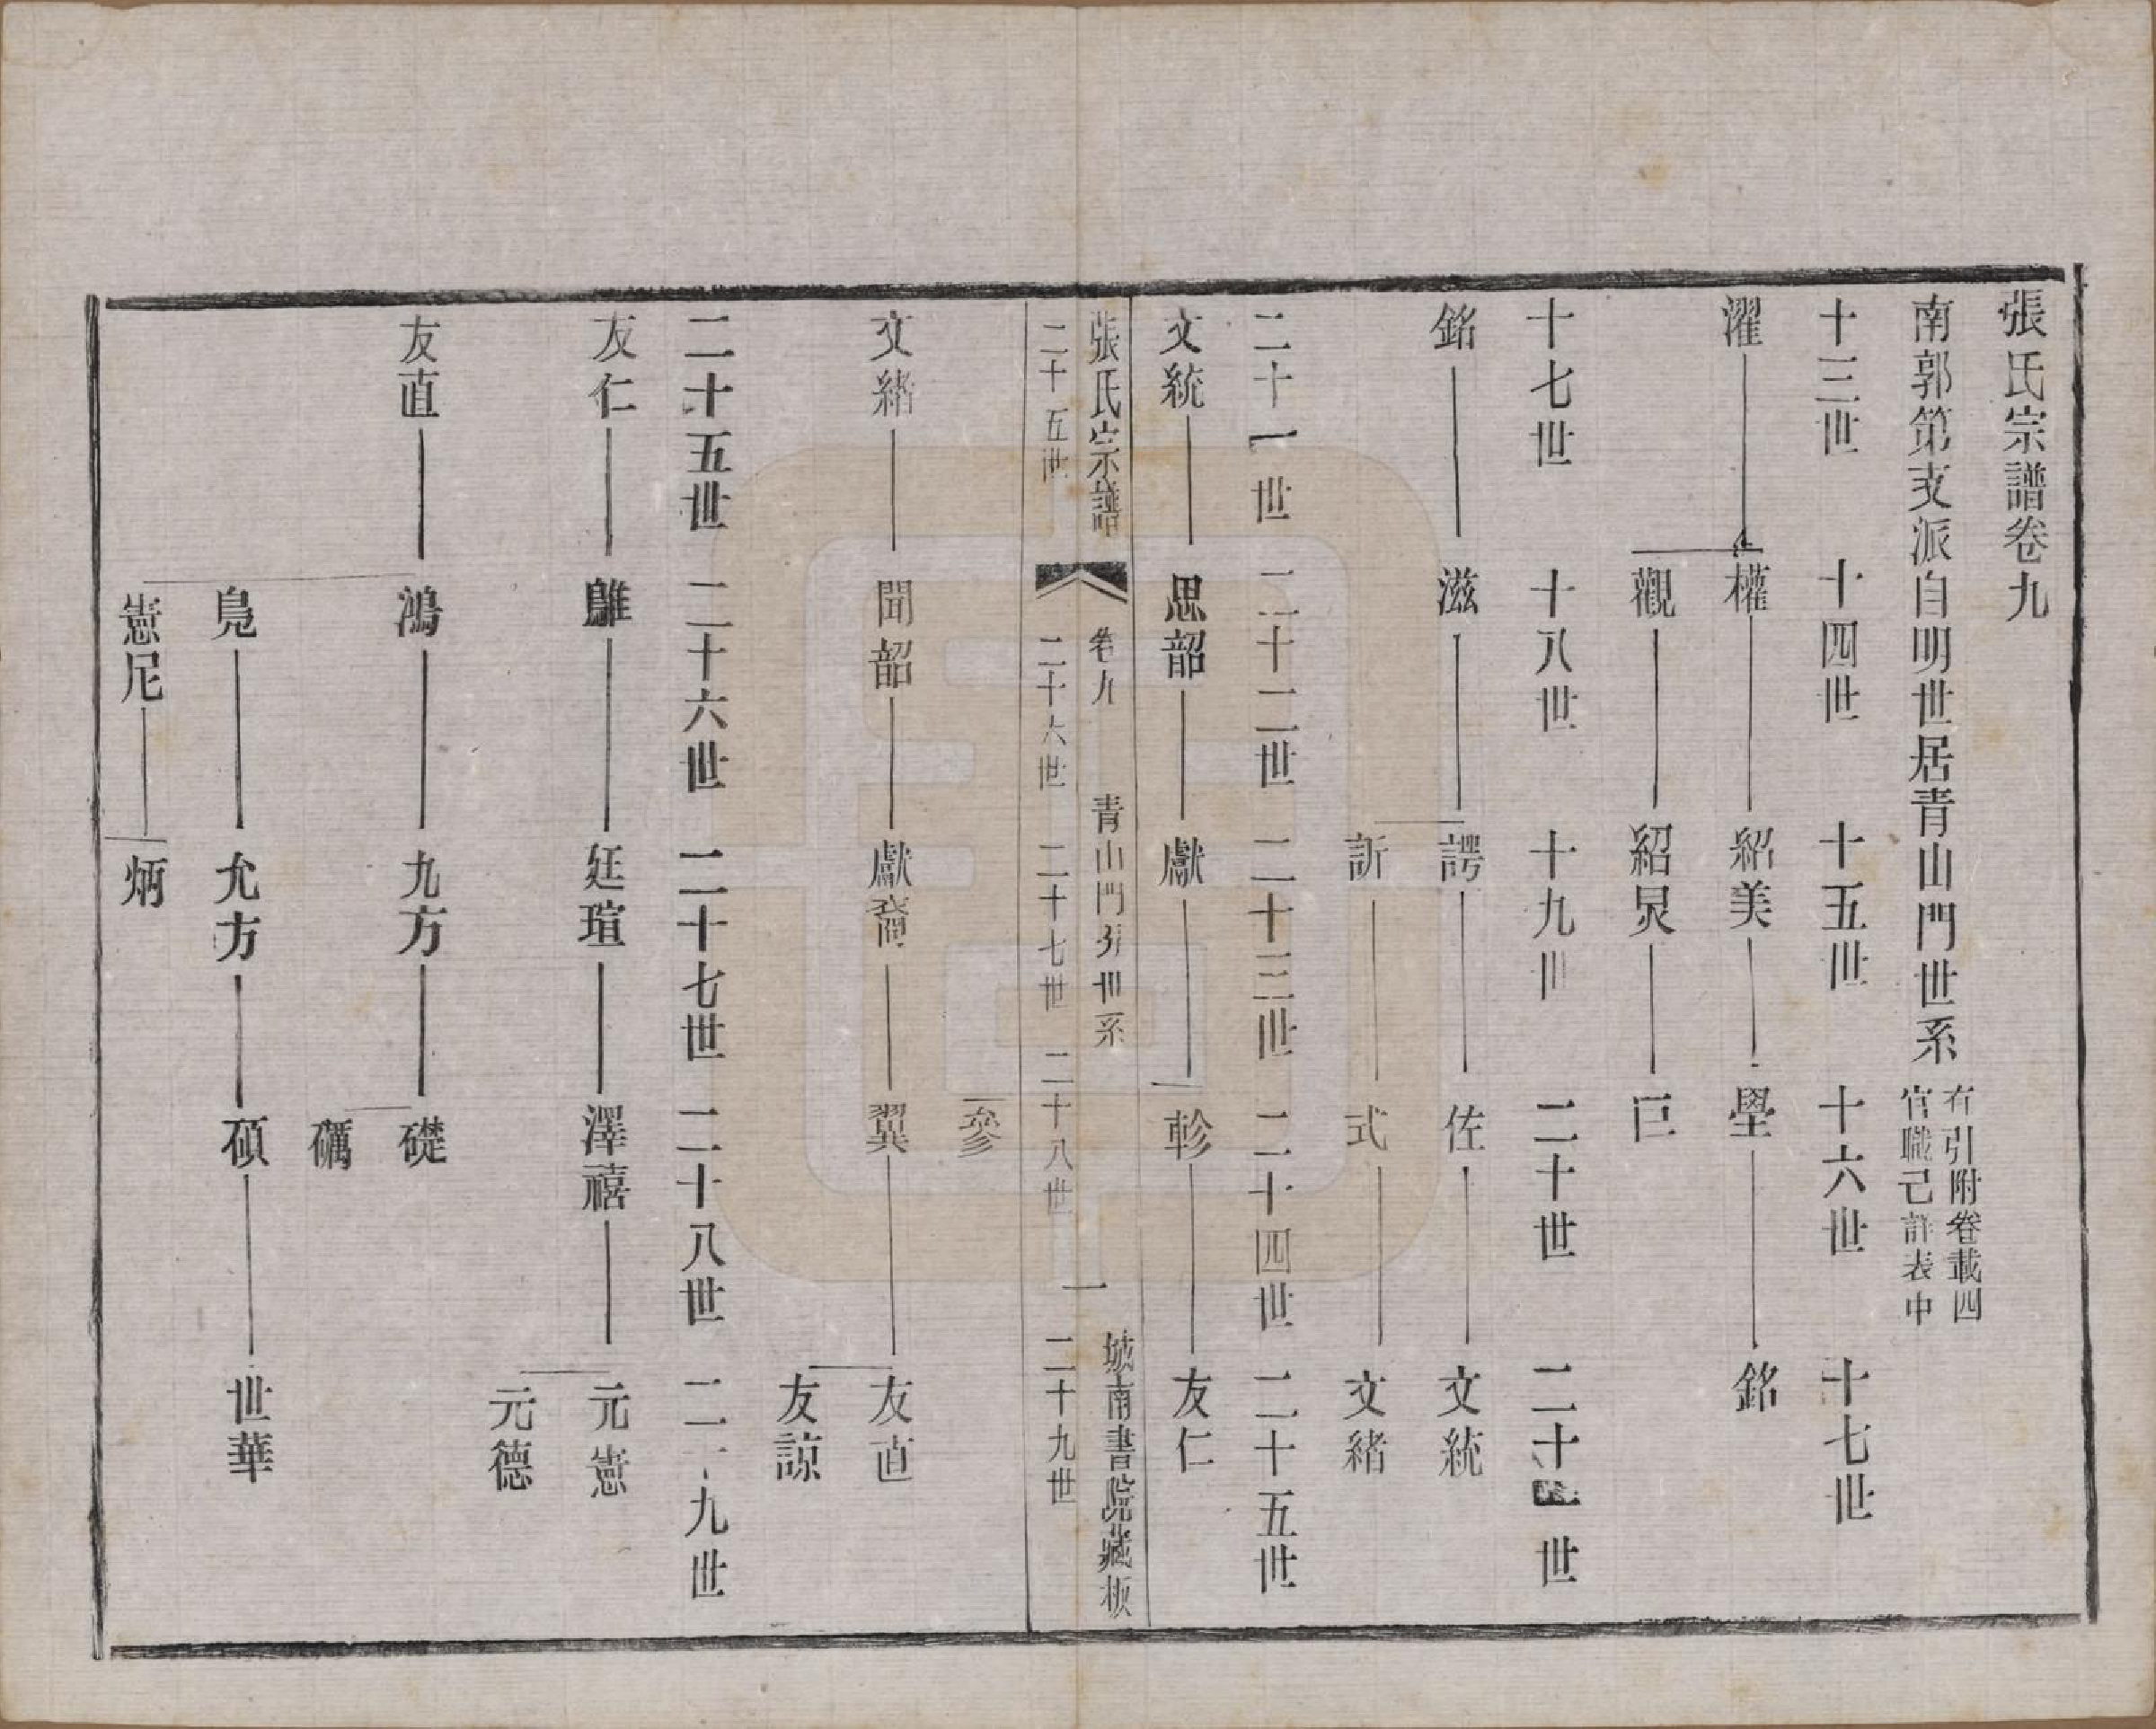 張氏宗譜卷九
南郭第支派自明世居青山門世系
右引附卷載四
官職己詳表中
十三世 十四世 十五世 十六世 十七世
濯 權 紹美 壆 銘
觀 紹炅 巨
十七世 十八世 十九世 二十世 二十 世
銘 滋 諤 佐 文統
訢 式 文緒
二十一世 二十二世 二十三世 二十四世 二十五世
文統 思韶 獻 軫 友仁
張氏宗譜 卷九 青山門分世系 一 城南書院藏板
二十五世 二十六世 二十七世 二十八世 二十九世
參
文緒 聞韶 獻裔 翼 友直
友諒
二十五世 二十六世 二十七世 二十八世 二十九世
友仁 雝 廷瑄 澤禧 元憲
元德
友直 鴻 九方 礎
礪
鳧 允方 碩 世華
憲尼 炳